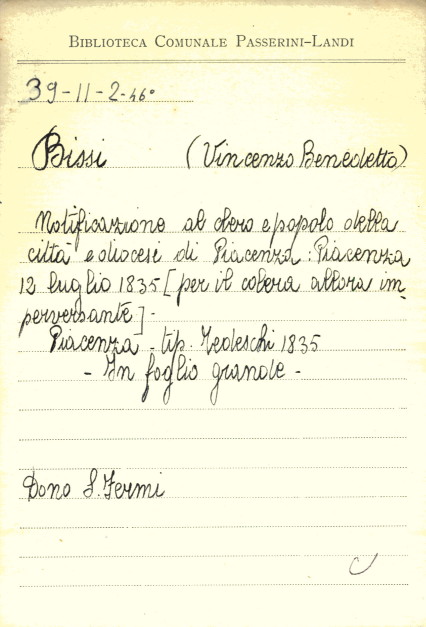 BIBLIOTECA COMUNALE PASSERINI-LANDI
39-11-2-46°
Bissi (Vincenzo Benedetto)
Notificazione al clero e popolo della
città e diocesi di Piacenza: Piacenza
12 luglio 1835 [per il colera allora im-
perversante] -
Piacenza - tip. Tedeschi 1835
- In foglio grande -
Dono S. Fermi